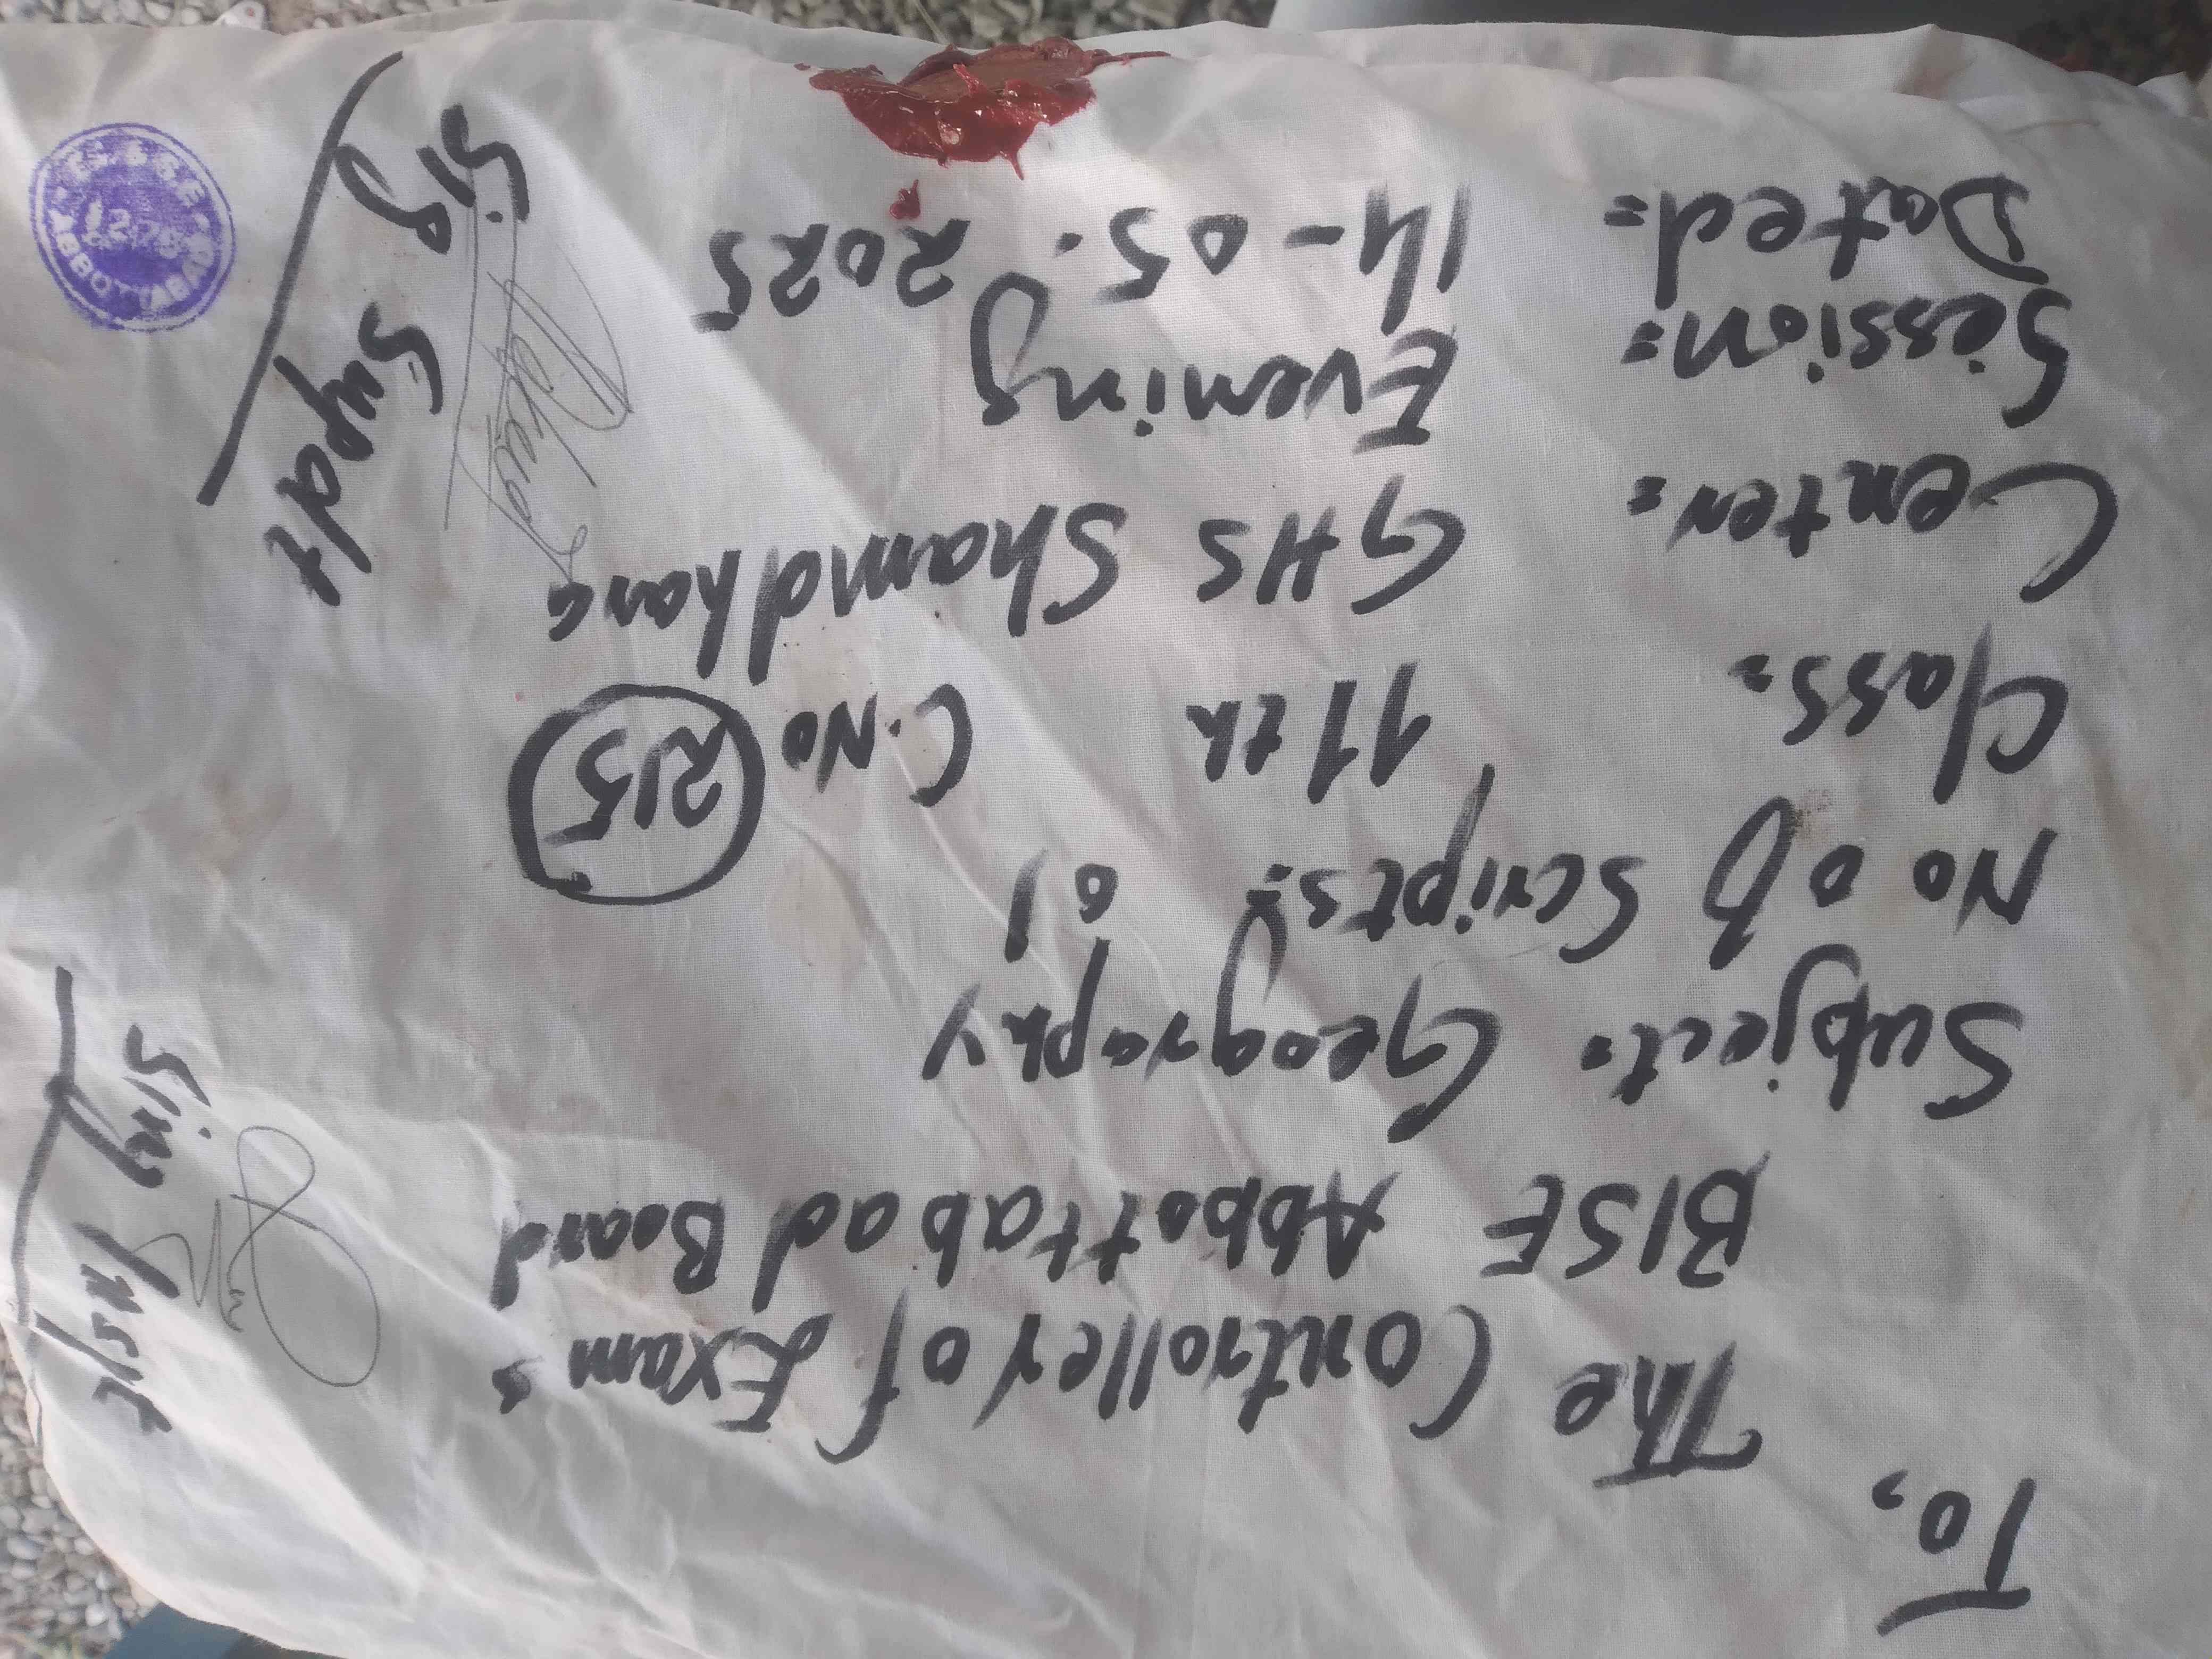 To,
The Controller of Exams
BISE Abbottabad Board
Subject: Geography
No of Scripts: 01
Class: 11th C.No 215
Center: GHS Shamdhara
Session: Evening
Dated: 14-05-2025
Sig Supdt
Sing Inspt
ABBOTTABAD